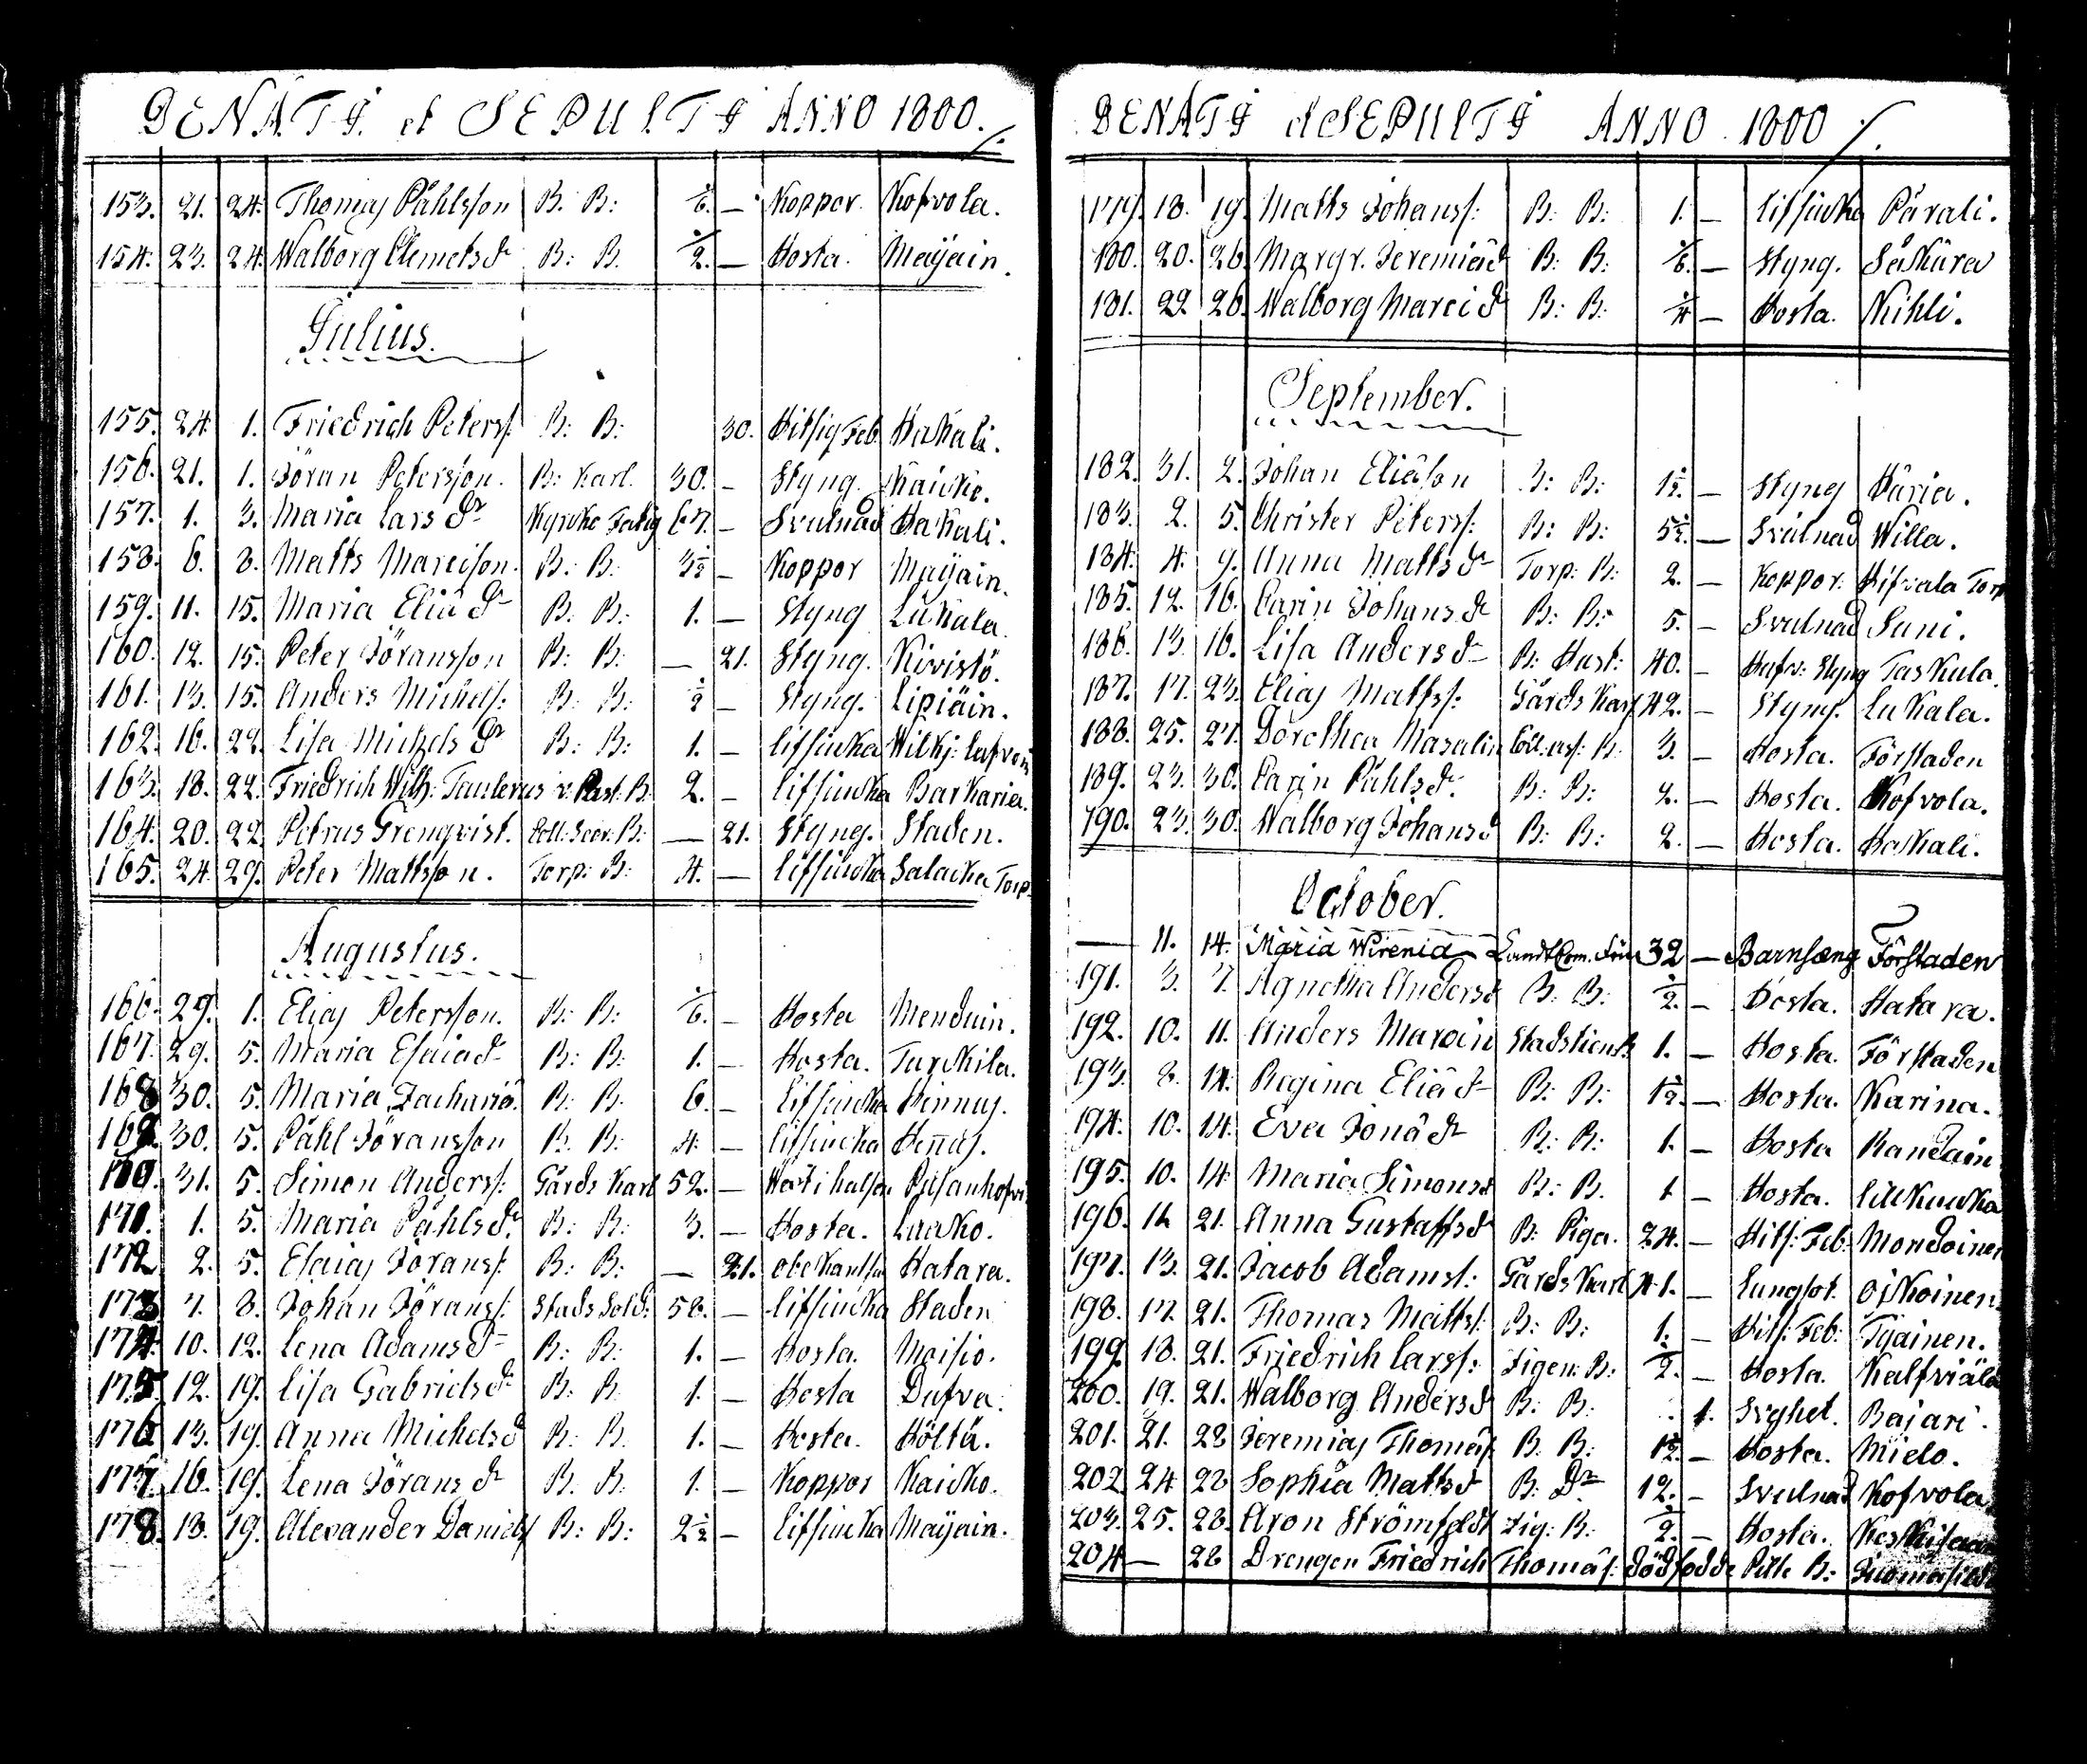 DENATI et SEPULTI ANNO 1800.
153. 21. 24. Thomas Påhlsson B. B: 1/6. — Koppor Kofvola.
154. 23. 24. Walborg Clemetsdr B: B. 1/2. — Hosta. Maÿain.
Julius.
155. 24 1. Friedrich Peterss: B: B: 30. Hitsig Feb. Hakali.
156. 21. 1. Jöran Petersson. B: Karl. 30. — Styng. Kaicko.
157. 1. 3. Maria Lars dr Kyrko Fatig 67. — Svulnad Hakali.
158. 6. 8. Matts Marcison. B: B: 3 1/2 — Koppor Maÿain.
159. 11. 15. Maria Eliä dr B: B: 1. — Styng Lukala.
160. 12. 15. Peter Jöransson B: B: — 21. Styng. Kivistö.
161. 13. 15. Anders Michels: B: B: 1/2 — Styng. Lipiäin.
162. 16. 22. Lisa Michels dr B: B: 1. — Lifsiucka Wilkj:
163. 18. 22. Friedrich Wilh: Taulerus v: Past: B: 2. — Lifsiucka Barkaria.
164. 20. 22. Petrus Grenqvist. Coll: Secr: B: — 21. Styng. Staden.
165. 24 29. Peter Mattsson. Torp: B: 4. — Lifsiucka Salacka Torp
Augustus.
166. 29. 1. Elias Petersson. B: B: 1/6. — Hosta Menduin.
167. 29. 5. Maria Esaiadr B: B: 1. — Hosta. Turckila.
168 30. 5. Maria Zachariä. B: B: 6. — Lifsiucka Hinnas.
169. 30. 5. Påhl Jöransson B: B: 4. — Lifsiucka Hennas.
170. 31. 5. Simon Anderss: Gårds Karl 52. —
171. 1. 5. Maria Påhls dr B: B: 3. — Hosta. Laacko.
172 2. 5. Esaias Jöranss: B: B: — 21. obekantsiu Hatara.
173 7. 8. Johan Jöranss: Stads Sold: 58. — Lifsiucka Staden
174. 10. 12. Lena Adams dr B: B: 1. — Hosta. Moisio.
175. 12. 19. Lisa Gabrielsdr B: B. 1. — Hosta Dufva.
176 13. 19. Anna Michelsd B: B. 1. — Hosta. Höltä.
177. 16. 19. Lena Jörans dr B: B. 1. — Koppor Kaicko.
178. 18. 19. Alexander Daniels: B: B: 2 1/2 — Lifsiucka Maÿain.
DENATI et SEPULTI ANNO 1800
179. 18. 19. Matts Johanss: B: B: 1. — Lifsiucka Pärali.
180. 20. 26. Margr. Jeremiäd B: B: 1/6. — Styng. Säkära
181. 22. 26. Walborg Marci dr B: B: 1/4 — Hosta. Nihli.
September.
182. 31. 2. Johan Eliäson B: B: 1 1/2. — Styng Häria.
183. 2. 5. Christer Peterss: B: B: 5 1/2. — Svulnad Willa.
184. 4. 9. Anna Mattsdr Torp: B: 2. — Koppor: Torp
185. 12. 16. Carin Johans dr B: B: 5. — Svulnad Suni.
186. 13. 16. Lisa Andersdr B: Hust: 40. — Hafv: Styng Taskula.
187. 17. 23. Elias Mattss: Gårds Karl 42. — Styng. Lukala.
188. 25. 27. Dorothea Masalin Coll: ass: B: 3. — Hosta. Förstaden
189. 23. 30. Carin Påhlsdr. B: B: 2. — Hosta. Kofvola.
190. 23. 30. Walborg Johansd B: B: 2. — Hosta. Hakali.
October.
— 11. 14. Maria Wirenia Landt Com. Fru 32 — Barnsæng Förstaden
191. 3. 7. Agnetha Andersd B: B: 1/2. — Hosta. Hatara.
192. 10. 11. Anders Maroin Stadstienst: 1. — Hosta. Förstaden
193. 8. 14. Regina Eliädr B: B: 1 1/2. — Hosta. Karina.
194. 10. 14. Eva Jonä dr B: B: 1. — Hosta Randain
195. 10. 14. Maria Simonsd B: B. 1 — Hosta.
196. 12 21. Anna Gustaffsd B: Piga. 24. — Hits: Feb: Mondoinen
197. 13. 21. Jacob Adamss: Gårds Karl 41. — Lungsot. Oikoinen
198. 17. 21. Thomas Mattss: B: B: 1. — Hits: Feb: Tijainen.
199. 18. 21. Friedrich Larss: Zigen: B: 1/2. — Hosta. Kalfviälä
200. 19. 21. Walborg Andersd B: B: 1. Svghet. Bajari.
201. 21. 28 Jeremias Thomäs: B: B: 1 1/2. — Hosta. Mielo.
202. 24 28 Sophia Mattsd B: Dr 12. — Svulnad Kofvola
203. 25. 28. Aron Strömfeldt Zig: B: 1/2. — Hosta.
204 — 28 Drengen Friedrich Thomäs: dödfödde Pilt: B: